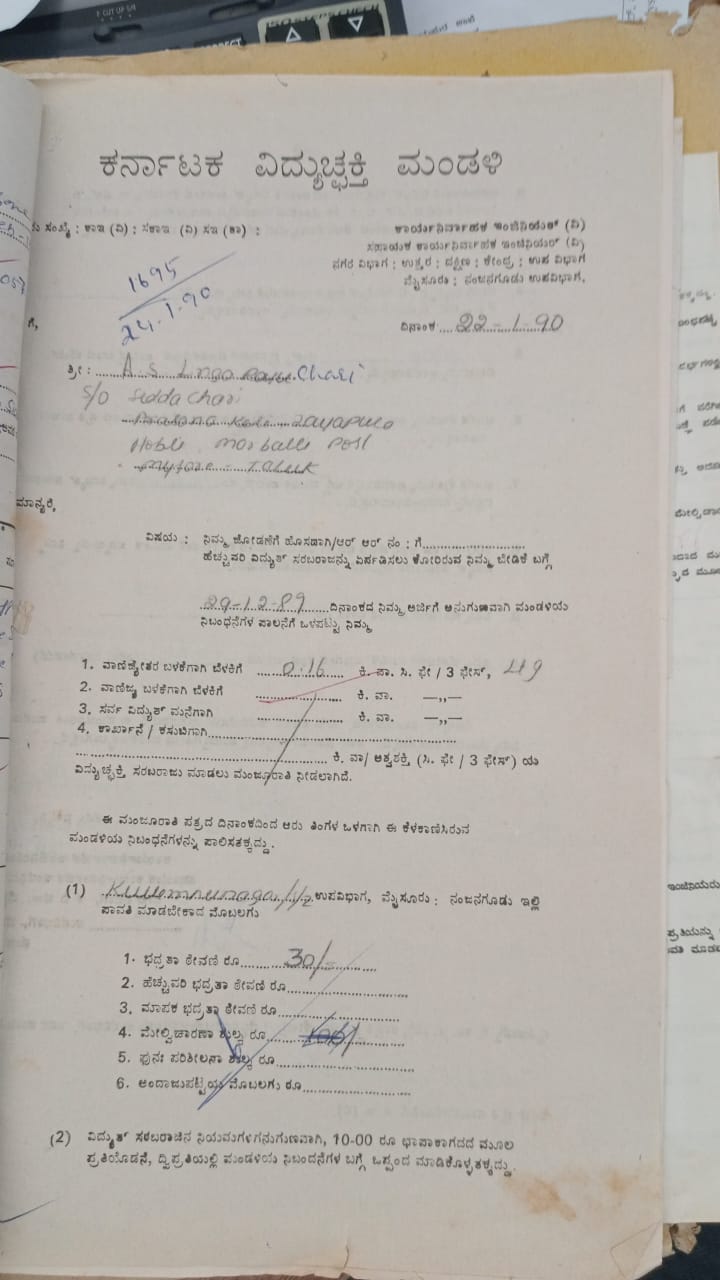 ಕರ್ನಾಟಕ ವಿದ್ಯುಚ್ಛಕ್ತಿ ಮಂಡಳಿ
ಸಂಖ್ಯೆ : ಕಾಇ (ವಿ) : ಸಕಾಇ (ವಿ) ಸಇ (ಕಾ) :
ಕಾರ್ಯನಿರ್ವಾಹಕ ಇಂಜಿನಿಯರ್ (ವಿ)
ಸಹಾಯಕ ಕಾರ್ಯನಿರ್ವಾಹಕ ಇಂಜಿನಿಯರ್ (ವಿ)
ನಗರ ವಿಭಾಗ : ಉತ್ತರ : ದಕ್ಷಿಣ : ಕೇಂದ್ರ : ಉಪ ವಿಭಾಗ
ಮೈಸೂರು : ನಂಜನಗೂಡು ಉಪವಿಭಾಗ.
1695
24.1.90
ದಿನಾಂಕ....22-1-90
ಗೆ,
ಶ್ರೀ : A.S Chari
S/O Sidda Chari
Jayapura
Hobli Post
Mysore - Taluk
ಮಾನ್ಯರೆ,
ವಿಷಯ : ನಿಮ್ಮ ಜೋಡಣೆಗೆ ಹೊಸದಾಗಿ/ಆರ್ ಆರ್ ನಂ : ಗೆ..........................
ಹೆಚ್ಚುವರಿ ವಿದ್ಯುತ್ ಸರಬರಾಜನ್ನು ಏರ್ಪಡಿಸಲು ಕೋರಿರುವ ನಿಮ್ಮ ಬೇಡಿಕೆ ಬಗ್ಗೆ
29-12-89 ದಿನಾಂಕದ ನಿಮ್ಮ ಅರ್ಜಿಗೆ ಅನುಗುಣವಾಗಿ ಮಂಡಳಿಯ
ನಿಬಂಧನೆಗಳ ಪಾಲನೆಗೆ ಒಳಪಟ್ಟು ನಿಮ್ಮ
1. ವಾಣಿಜ್ಯೇತರ ಬಳಕೆಗಾಗಿ ಬೆಳಕಿಗೆ 0.16 ಕಿ. ವಾ. ಸಿ. ಫೇ / 3 ಫೇಸ್,
2. ವಾಣಿಜ್ಯ ಬಳಕೆಗಾಗಿ ಬೆಳಕಿಗೆ ...................... ಕಿ. ವಾ. —,,—
3. ಸರ್ವ ವಿದ್ಯುತ್ ಮನೆಗಾಗಿ ...................... ಕಿ. ವಾ. —,,—
4. ಕಾರ್ಖಾನೆ / ಕಸುಬಿಗಾಗಿ............................................................
............................................................ ಕಿ. ವಾ/ ಅಶ್ವಶಕ್ತಿ (ಸಿ. ಫೇ / 3 ಫೇಸ್) ಯ
ವಿದ್ಯುಚ್ಛಕ್ತಿ ಸರಬರಾಜು ಮಾಡಲು ಮಂಜೂರಾತಿ ನೀಡಲಾಗಿದೆ.
ಈ ಮಂಜೂರಾತಿ ಪತ್ರದ ದಿನಾಂಕದಿಂದ ಆರು ತಿಂಗಳ ಒಳಗಾಗಿ ಈ ಕೆಳಕಾಣಿಸಿರುವ
ಮಂಡಳಿಯ ನಿಬಂಧನೆಗಳನ್ನು ಪಾಲಿಸತಕ್ಕದ್ದು.
(1) ಉಪವಿಭಾಗ, ಮೈಸೂರು : ನಂಜನಗೂಡು ಇಲ್ಲಿ
ಪಾವತಿ ಮಾಡಬೇಕಾದ ಮೊಬಲಗು
1. ಭದ್ರತಾ ಠೇವಣಿ ರೂ..........30/-..........
2. ಹೆಚ್ಚುವರಿ ಭದ್ರತಾ ಠೇವಣಿ ರೂ..............................
3. ಮಾಪಕ ಭದ್ರತಾ ಠೇವಣಿ ರೂ..............................
4. ಮೇಲ್ವಿಚಾರಣಾ ಶುಲ್ಕ ರೂ..............................
5. ಪುನಃ ಪರಿಶೀಲನಾ ಶುಲ್ಕ ರೂ..............................
6. ಅಂದಾಜುಪಟ್ಟಿಯ ಮೊಬಲಗು ರೂ..............................
(2) ವಿದ್ಯುತ್ ಸರಬರಾಜಿನ ನಿಯಮಗಳಿಗನುಗುಣವಾಗಿ, 10-00 ರೂ ಛಾಪಾಕಾಗದದ ಮೂಲ
ಪ್ರತಿಯೊಡನೆ, ದ್ವಿಪ್ರತಿಯಲ್ಲಿ ಮಂಡಳಿಯ ನಿಬಂದನೆಗಳ ಬಗ್ಗೆ ಒಪ್ಪಂದ ಮಾಡಿಕೊಳ್ಳತಕ್ಕದ್ದು.